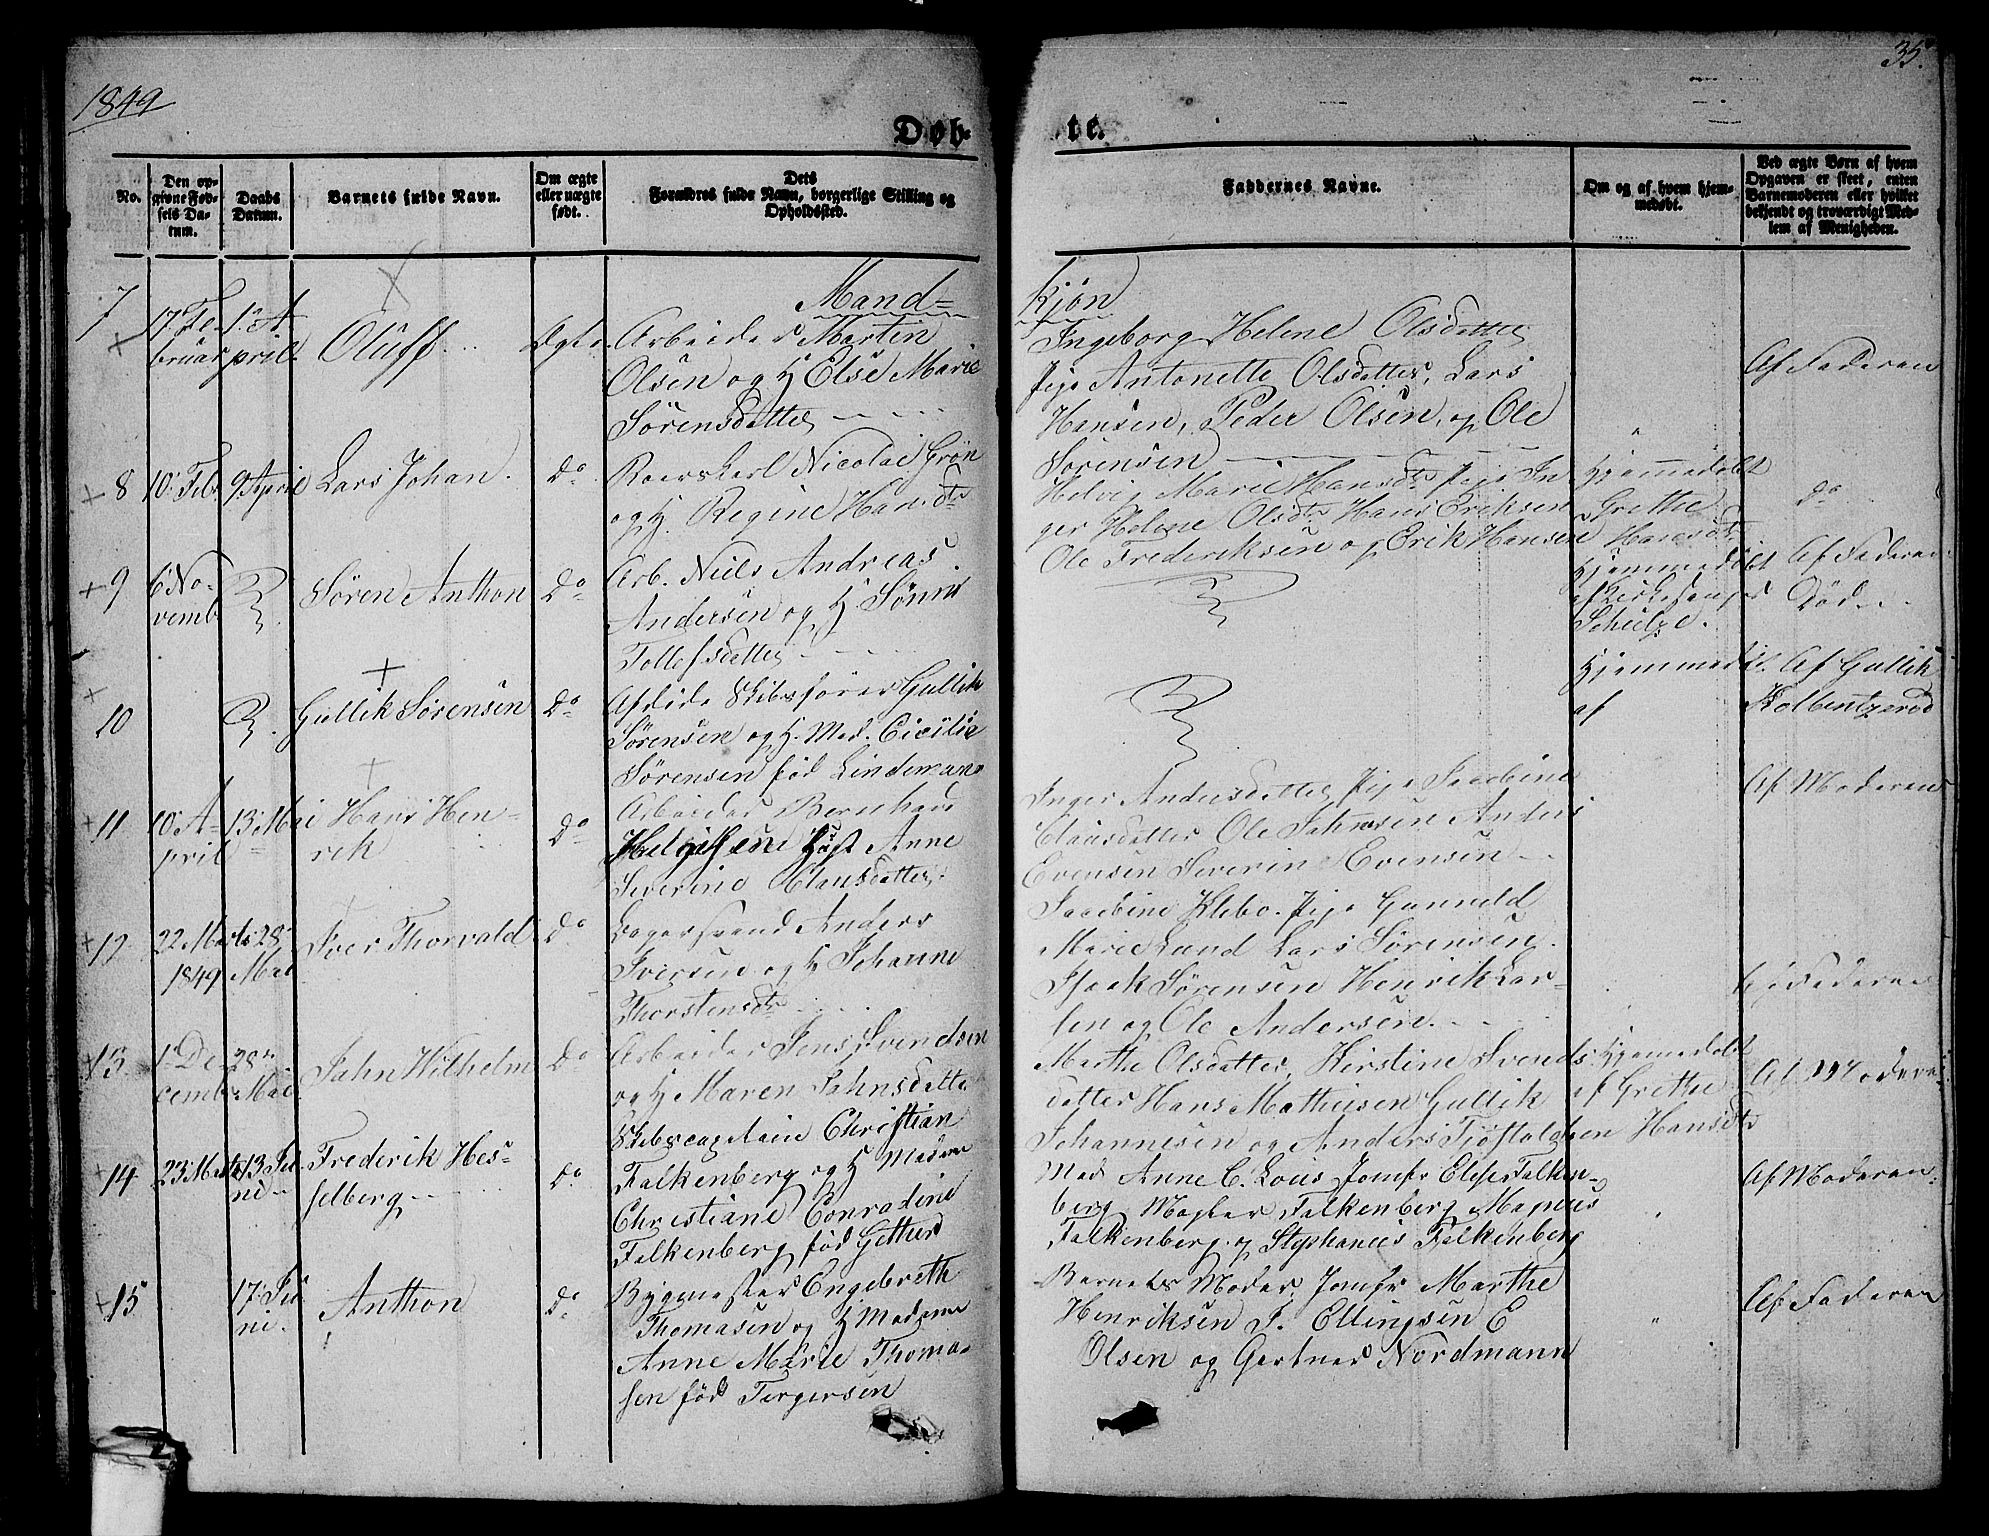 1849
35.
Døb-
te.
No.
Den op-
givne Fød-
sels Da-
tum.
Daabs
Datum.
Barnets fulde Navn.
Om ægte
eller uægte
født.
Dets
Forældres fulde Navn, borgerlige Stilling og
Opholdssted.
Faddernes Navne.
Om og af hvem hjem-
medøbt.
Ved ægte Børn af hvem
Opgaven er skeet, enten
Barnemoderen eller hvilket
bekjendt og troværdigt Med-
lem af Menigheden.
Mand=
kjøn
7
17 Fe
bruar
1. A
pril
Oluff
Ægte
Arbeider Martin
Olsen og H Else Marie
Sørensdatter
Ingeborg Helene Olsdatter
Pige Antonette Olsdatter, Lars
Hansen, Peder Olsen, og Ole
Sørensen
Af Faderen
8
10 Feb
9 April
Lars Johan.
Do
Roerskarl Nicolai Grøn
og H. Regine Hansdtr
Helvig Marie Hansdtr Pige In
ger Helene Olsdtr Hans Eriksen
Ole Frederiksen og Erik Hansen
Hjemmedøbt
Grethe
Hansdtr
Do
9
6 No-
vemb
Søren Anthon
Do
Arb. Niels Andreas
Andersen og H Sønni
Tollefsdatter
Hjemmedøbt
af Kirkesanger
Schulze.
Af Faderen
Død
10
Gullik Sørensen
Do
Afdøde Skibsfører Gullik
Sørensen og H. Mad. Cicilie
Sørensen fød Lindeman
Hjemmedøbt
af
Af Gullik
Kolbentzerød
11
10 A-
pril
13 Mai
Hans Hen-
rik
Do
Arbeider Bernhard
Helgesen Høst Anne
Severine Clausdatter
Inger Andersdatter Pige Jacobine
Clausdatter Ole Johnsen Anders
Evensen Severin Evensen
Af Moderen
12
22 Marts
1849
28
Mai
Iver Thorvald
Do
Bagersvend Anders
Iversen og H Johanne
Thorstensdtr
Jacobine Klebo. Pige Gunneld
Marie Lund Lars Sørensen
Isaak Sørensen Henrik Lar-
sen og Ole Andersen.
Af Faderen
13
1 De
cemb
28
Mai
Jahn Wilhelm
Do
Arbeider Jens Svendsen
og H Maren Jahnsdatter
Marthe Olsdatter, Kirstine Svends
datter Hans Mathisen Gullik
Johannesen og Anders Tjøstoldsen
Hjemmedøbt
af Grethe
Hansdtr
Af Moderen
14
23 Marts
13 Ju
ni
Frederik Hes-
selberg
Do
Skibscapitain Christian
Falkenberg og H Madame
Christiane Conradine
Falkenberg fød Gether
Mad Anne C. Lous Jomfr Elise Falken-
berg Mægler Falkenberg Magnus
Falkenberg og Stephanus Falkenberg
Af Moderen
15
17 Ju
ni.
Anthon
Do
Bygmester Engebreth
Thomasen og H Madame
Anne Marie Thoma-
sen fød Tergersen
Barnets Moder, Jomfr Marthe
Henriksen J. Ellingsen E
Olsen og Gartner Nordmann
Af Faderen